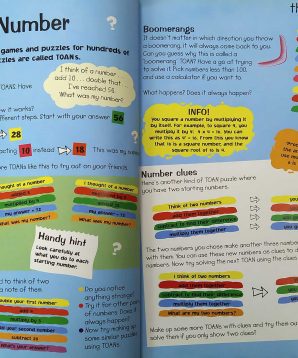 Number
games and puzzles for hundreds of
zles are called TOANs.
I think of a number
add 10... double that
I've reached 56.
What was my number?
TOANs Have
w it works?
fferent steps. Start with your answer 56
28
acting 10 instead 18 This was my
ore TOANs like this to try out on your friends.
thought of a number
I thought of a number
multiplied by
my answer = 72
my answer =
What was my number?
What was my number?
Handy hint
Look carefully at
what you do to each
starting number.
d to think of two
a note of them.
ouble your first number
add
multiply by 5
d your second number
subtract 25
What's your answer?
Do you notice
anything strange?
Try it for other pairs
of numbers. Does it
always happen?
Now try making up
some similar puzzles
using TOANs.
th
Boomerangs
It doesn't matter in which direction you throw
a boomerang, it will always come back to you.
Can you guess why this is called a
boomerang TOAN? Have a go at trying
to solve it. Pick numbers less than 100
and use a calculator if you want to.
What happens? Does it always happen?
INFO!
You square a number by multiplying it
by itself. For example, to square 4, you
multiply it by 4: 4 x 4 = 16. You can
write this as 4² = 16. From this you know
that 16 is a square number, and the
square root of 16 is 4.
Number clues
Here's another kind of TOAN puzzle where
you have two starting numbers.
Think of two numbers
add them together
subtract to find their difference
multiply them together
you
you
you
The two numbers you chose make another three numbers
with them. You can use these new numbers as clues to
numbers. Now try solving the next TOAN using the clues
I think of two numbers
add them together
subtract to find their difference
multiply them together
What are my two numbers?
you
Make up some more TOANs with clues and try them out
solve them if you only show two clues?